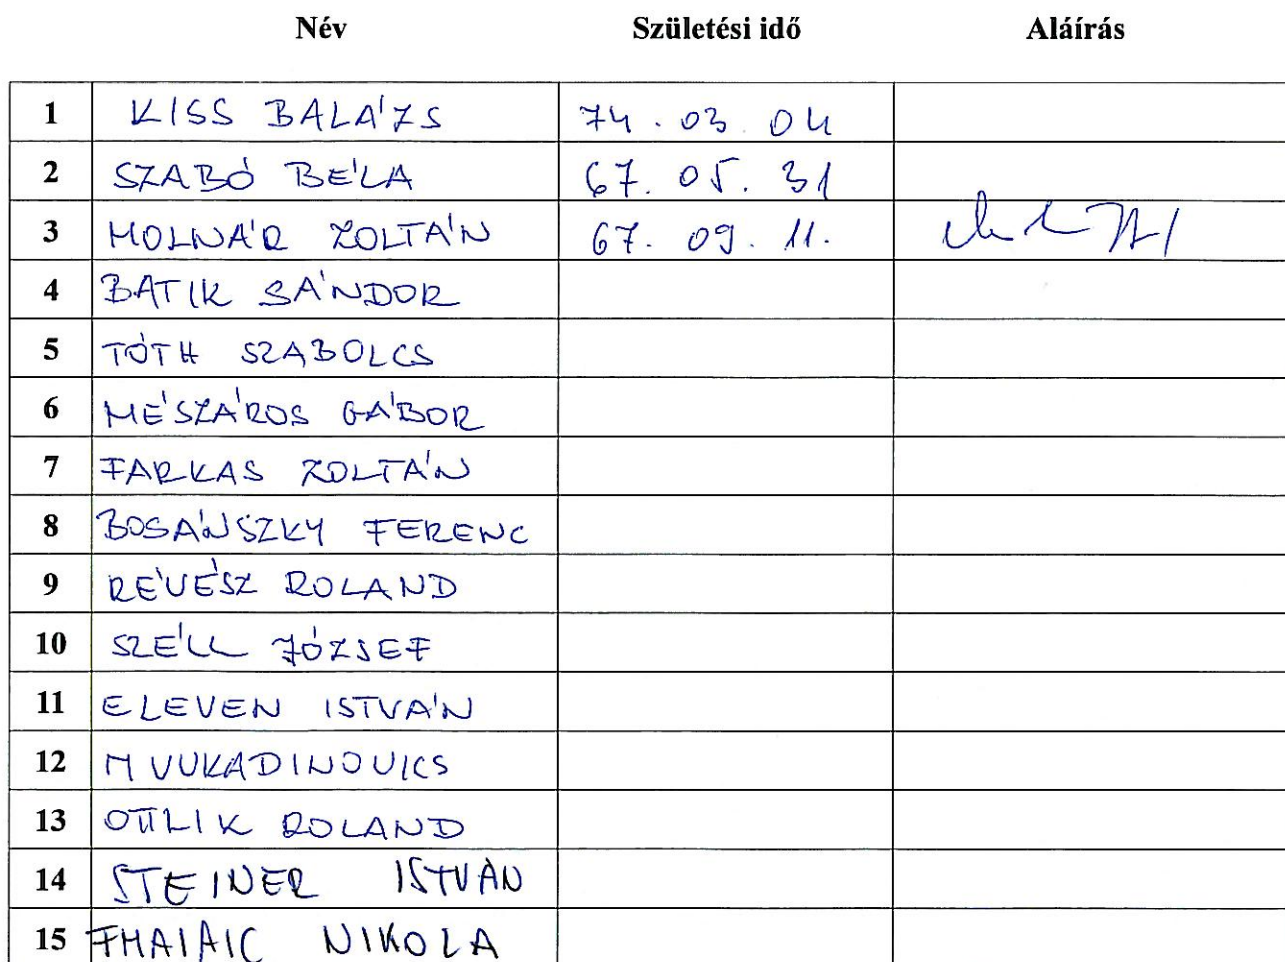 Név Születési idő Aláírás
1 KISS BALÁZS 74. 03 04
2 SZABÓ BÉLA 67. 05. 31
3 MOLNÁR ZOLTÁN 67. 09. 11.
4 BATIK SÁNDOR
5 TÓTH SZABOLCS
6 MÉSZÁROS GÁBOR
7 FARKAS ZOLTÁN
8 BOSÁNSZKY FERENC
9 RÉVÉSZ ROLAND
10 SZÉLL JÓZSEF
11 ELEVEN ISTVÁN
12 M VUKADINOVICS
13 OTTLIK ROLAND
14 STEINER ISTVÁN
15 NIKOLA